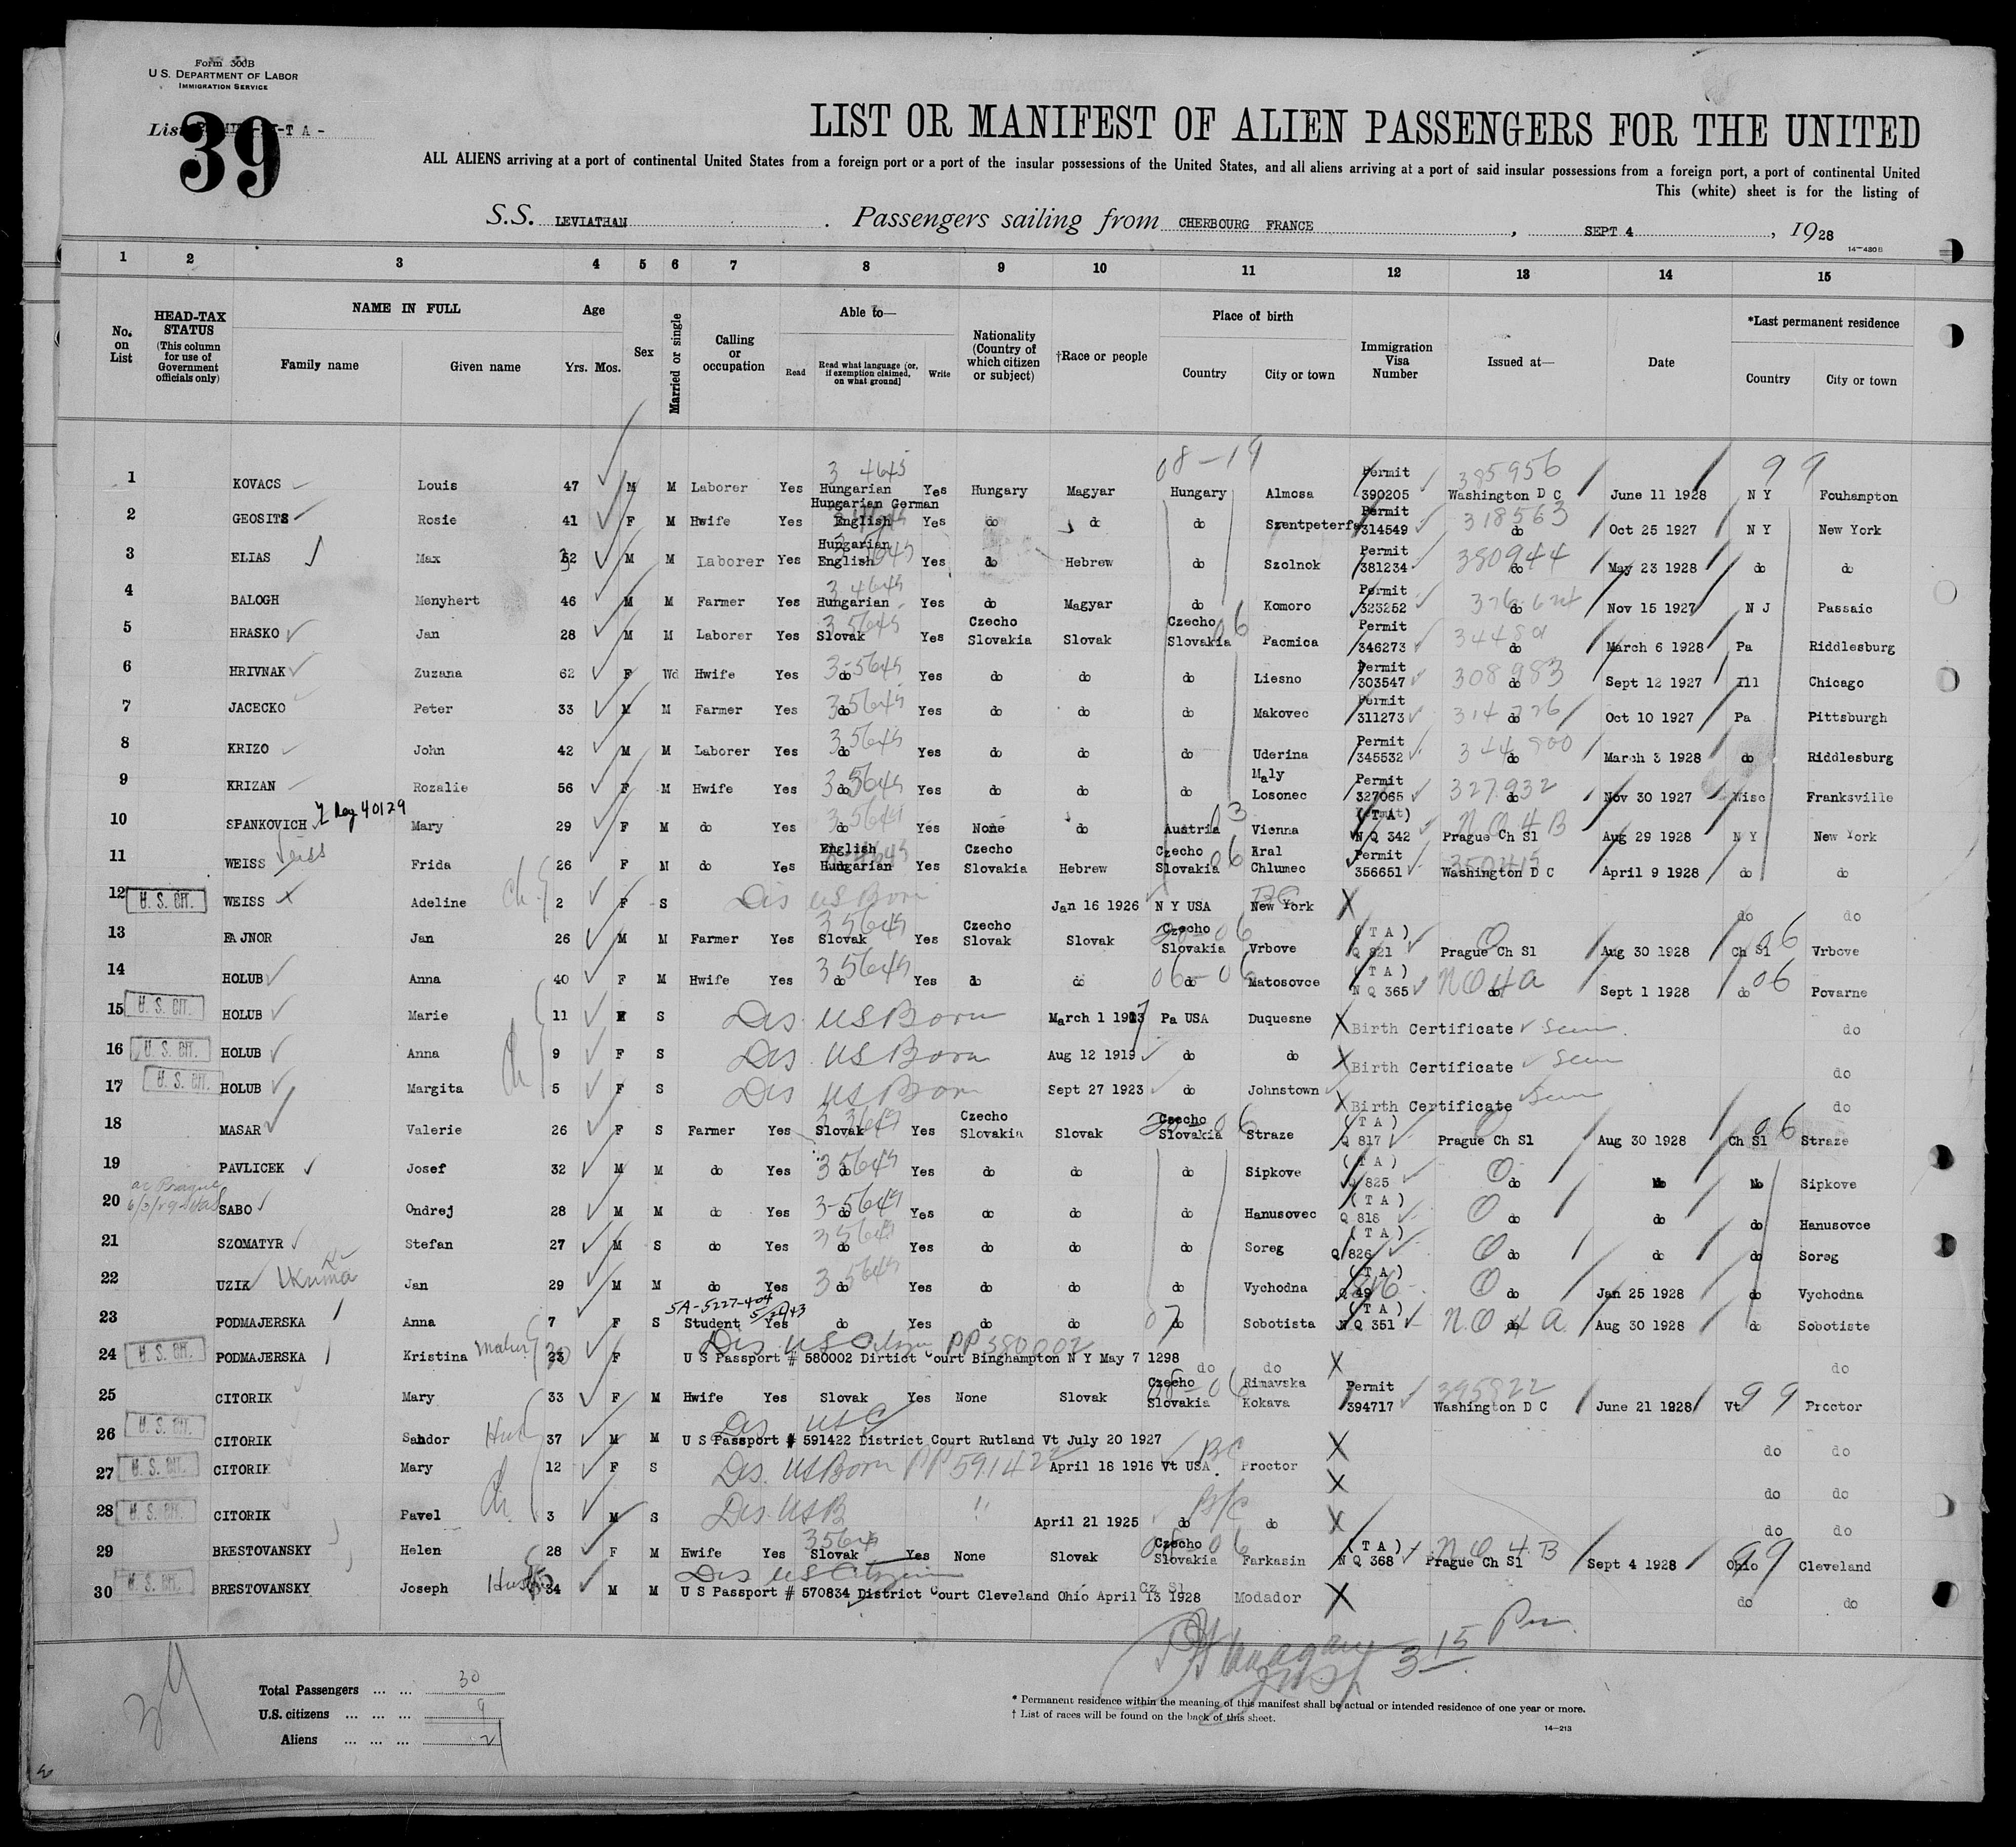 Form 500B
U.S. DEPARTMENT OF LABOR
IMMIGRATION SERVICE
List
39
LIST OR MANIFEST OF ALIEN PASSENGERS FOR THE UNITED
ALL ALIENS arriving at a port of continental United States from a foreign port or a port of the insular possessions of the United States, and all aliens arriving at a port of said insular possessions from a foreign port, a port of continental United
This (white) sheet is for the listing of
S.S. LEVIATHAN . Passengers sailing from CHERBOURG FRANCE , SEPT 4 , 1928
14-430B
1 2 3 4 5 6 7 8 9 10 11 12 13 14 15
No. on List HEAD-TAX STATUS (This column for use of Government officials only) NAME IN FULL Family name Given name Age Yrs. Mos. Sex Married or single Calling or occupation Able to— Read Read what language [or, if exemption claimed, on what ground] Write Nationality (Country of which citizen or subject) †Race or people Place of birth Country City or town Immigration Visa Number Issued at— Date *Last permanent residence Country City or town
08-19 99
1 KOVACS Louis 47 M M Laborer Yes Hungarian Yes Hungary Magyar Hungary Almosa Permit 390205 385956 Washington D C June 11 1928 N Y Fouhampton
2 GEOSITS Rosie 41 F M Hwife Yes Hungarian German English Yes do do do Szentpeterfa Permit 314549 318563 do Oct 25 1927 N Y New York
3 ELIAS Max 52 M M Laborer Yes Hungarian English Yes do Hebrew do Szolnok Permit 381234 380944 do May 23 1928 do do
4 BALOGH Menyhert 46 M M Farmer Yes Hungarian Yes do Magyar do Komoro Permit 323252 do Nov 15 1927 N J Passaic
5 HRASKO Jan 28 M M Laborer Yes Slovak Yes Czecho Slovakia Slovak Czecho Slovakia 06 Pacmica Permit 346273 do March 6 1928 Pa Riddlesburg
6 HRIVNAK Zuzana 62 F Wd Hwife Yes do Yes do do do Liesno Permit 303547 308983 do Sept 12 1927 Ill Chicago
7 JACECKO Peter 33 M M Farmer Yes do Yes do do do Makovec Permit 311273 do Oct 10 1927 Pa Pittsburgh
8 KRIZO John 42 M M Laborer Yes do Yes do do do Uderina Permit 345532 do March 3 1928 do Riddlesburg
9 KRIZAN Rozalie 56 F M Hwife Yes do Yes do do do Maly Losonec Permit 327065 327932 do Nov 30 1927 Wisc Franksville
10 SPANKOVICH Mary 29 F M do Yes do Yes None do Austria Vienna (T A) N Q 342 Prague Ch Sl NO4B Aug 29 1928 N Y New York
11 WEISS Frida 26 F M do Yes English Hungarian Yes Czecho Slovakia Hebrew Czecho Slovakia 06 Kral Chlumec Permit 356651 Washington D C April 9 1928 do do
12 U. S. CIT. WEISS Adeline ch 2 F S Dis US Born Jan 16 1926 N Y USA New York X do do
13 FAJNOR Jan 26 M M Farmer Yes Slovak Yes Czecho Slovak Slovak Czecho Slovakia Vrbove (T A) Q 821 Prague Ch Sl Aug 30 1928 Ch Sl 06 Vrbove
14 HOLUB Anna 40 F M Hwife Yes do Yes do do do 06-06 Matosovce (T A) N Q 365 do NO4A Sept 1 1928 do 06 Povarne
15 U. S. CIT. HOLUB Marie 11 F S Dis US Born March 1 1917 Pa USA Duquesne X Birth Certificate seen do
16 U. S. CIT. HOLUB Anna 9 F S Dis US Born Aug 12 1919 do do X Birth Certificate seen do
17 U. S. CIT. HOLUB Margita 5 F S Dis US Born Sept 27 1923 do Johnstown X Birth Certificate Seen do
18 MASAR Valerie 26 F S Farmer Yes Slovak Yes Czecho Slovakia Slovak Czecho Slovakia Straze (T A) Q 817 Prague Ch Sl Aug 30 1928 Ch Sl 06 Straze
19 PAVLICEK Josef 32 M M do Yes do Yes do do do Sipkove (T A) Q 825 do do do Sipkove
20 SABO Ondrej 28 M M do Yes do Yes do do do Hanusovec (T A) Q 818 do do do Hanusovce
21 SZOMATYR Stefan 27 M S do Yes do Yes do do do Soreg (T A) Q 826 do do do Soreg
22 UZIK Jan 29 M M do Yes do Yes do do do Vychodna (T A) do Jan 25 1928 do Vychodna
5A-5227-404
23 PODMAJERSKA Anna 7 F S Student Yes do Yes do do do 07 Sobotista (T A) N Q 351 do NO4A Aug 30 1928 do Sobotiste
24 U. S. CIT. PODMAJERSKA Kristina 23 F Dis US Citizen U S Passport # 580002 Dirtict Court Binghampton N Y May 7 1298 do do X do
25 CITORIK Mary 33 F M Hwife Yes Slovak Yes None Slovak Czecho Slovakia Rimavska Kokava Permit 394717 395822 Washington D C June 21 1928 Vt 99 Proctor
26 U. S. CIT. CITORIK Sandor 37 M M Dis USC U S Passport # 591422 District Court Rutland Vt July 20 1927 X do do
27 U. S. CIT. CITORIK Mary 12 F S Dis. US Born PP 591422 April 18 1916 Vt USA BC Proctor X do do
28 U. S. CIT. CITORIK Pavel 3 M S Dis. USB April 21 1925 do B/C do X do do
29 BRESTOVANSKY Helen 28 F M Hwife Yes Slovak Yes None Slovak Czecho Slovakia Farkasin (T A) N Q 368 Prague Ch Sl NO4B Sept 4 1928 Ohio 99 Cleveland
30 U. S. CIT. BRESTOVANSKY Joseph 34 M M Dis US Citizen U S Passport # 570834 District Court Cleveland Ohio April 13 1928 Cz Sl Modador X do do
3 15 Pm.
Total Passengers ... ... 30
U.S. citizens ... ... ... 9
Aliens ... ... ... 21
* Permanent residence within the meaning of this manifest shall be actual or intended residence of one year or more.
† List of races will be found on the back of this sheet.
14-213